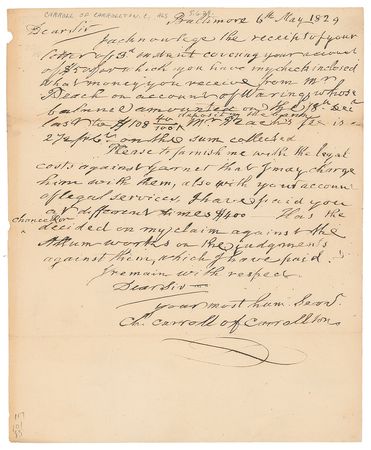 CARROLL OF CARROLLTON, C. ALS
Baltimore 6th May 1829
Dear Sir
I acknowledge the receipt of your
letter of 3d instant covering your account
of $50 for which you have my check inclosed
that money you receive from Mr
on account of Waring, whose
balance amounted on the 18th Dec
last to $108 40/100 deposit in the bank
Mr fee is
2½ on the sum collected
Please to furnish me with the legal
costs against Garnet that I may charge
him with them, also with your account
of legal services. I have paid you
at different times $400 — Has the
Chancellor
decided on my claim against the
Allum works on the judgments
against them, which I have paid.
I remain with respect
Dear Sir
your most hum. Servt.
Ch. Carroll of Carrollton